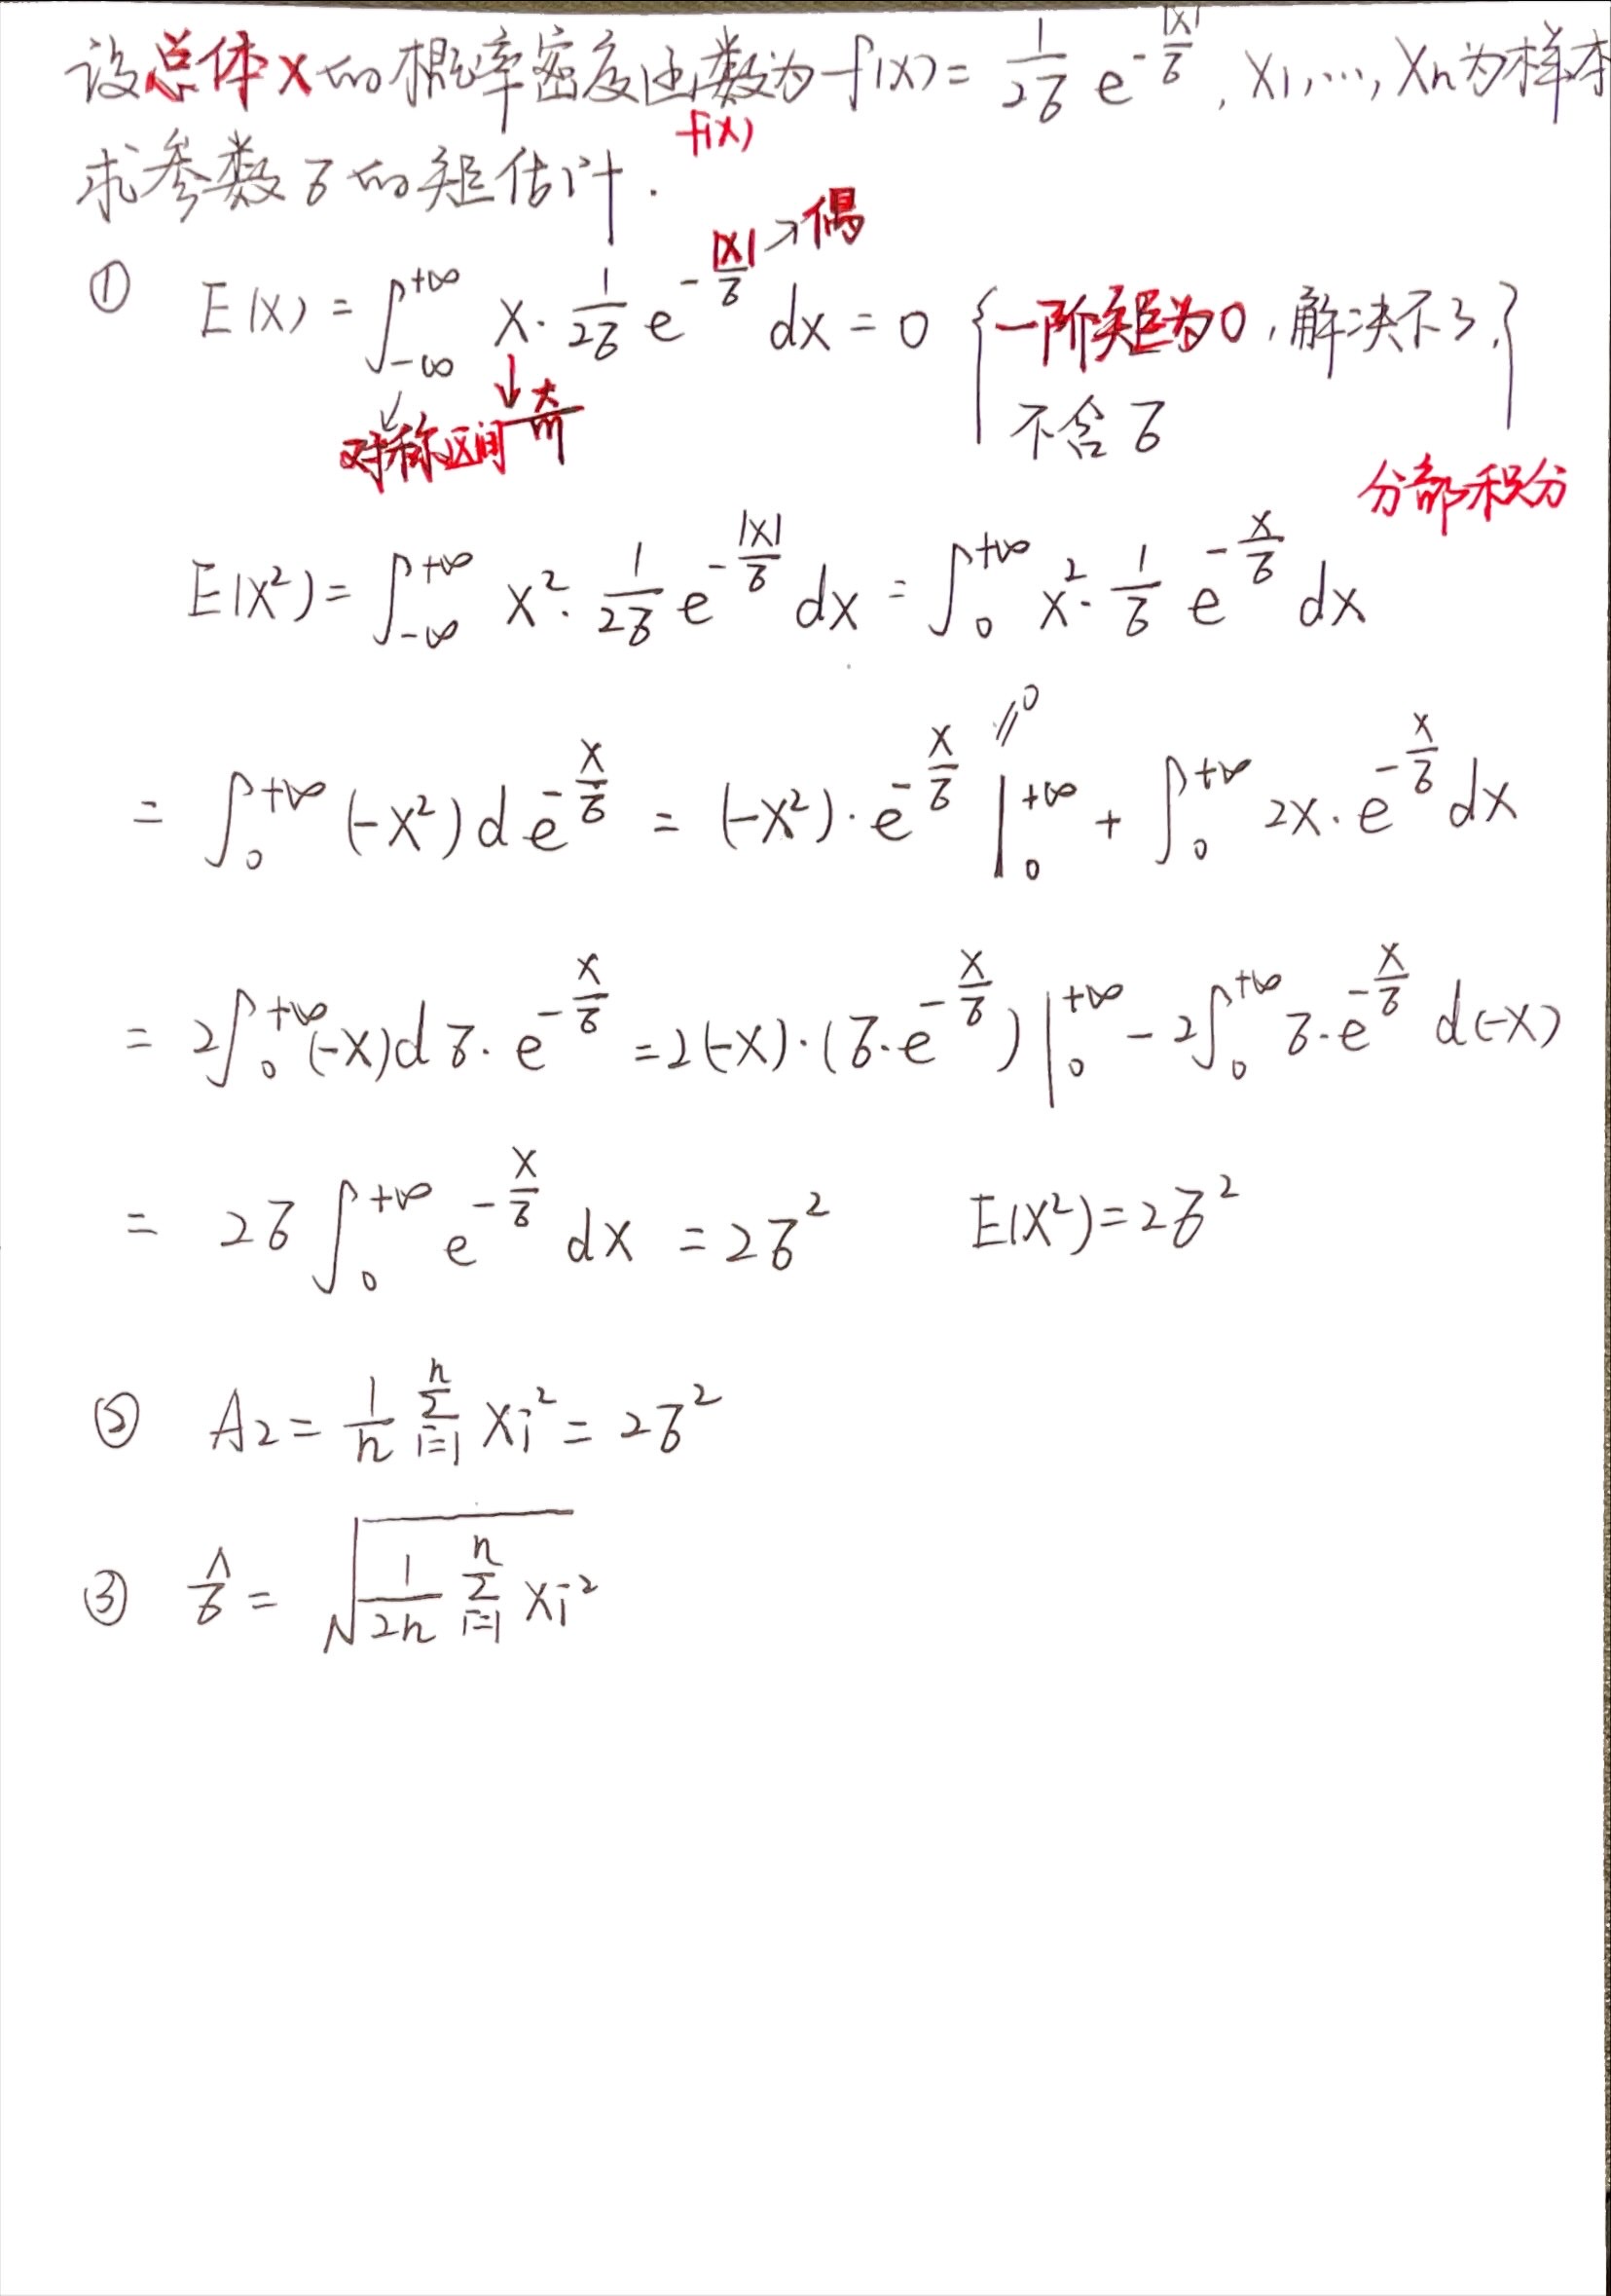 设总体X的概率密度函数为f(x)= 1/(2σ) e^(-|x|/σ), X1,…, Xn为样本
f(x)
求参数σ的矩估计.
① E(X) = ∫_{-∞}^{+∞} x · 1/(2σ) e^(-|x|/σ) dx = 0 {一阶矩为0, 解决不了, 不含σ}
→偶
对称区间 奇
分部积分
E(X²) = ∫_{-∞}^{+∞} x² · 1/(2σ) e^(-|x|/σ) dx = ∫_0^{+∞} x² · 1/σ e^(-x/σ) dx
= ∫_0^{+∞} (-x²) d e^(-x/σ) = (-x²) · e^(-x/σ) |_0^{+∞} + ∫_0^{+∞} 2x · e^(-x/σ) dx
=0
= 2∫_0^{+∞} (-x) d σ · e^(-x/σ) = 2(-x) · (σ · e^(-x/σ)) |_0^{+∞} - 2∫_0^{+∞} σ · e^(-x/σ) d(-x)
= 2σ ∫_0^{+∞} e^(-x/σ) dx = 2σ² E(X²) = 2σ²
② A2 = 1/n Σ_{i=1}^n Xi² = 2σ²
③ σ̂ = √(1/(2n) Σ_{i=1}^n Xi²)